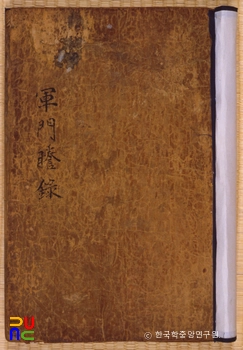 軍門謄錄
© 한국학중앙연구원